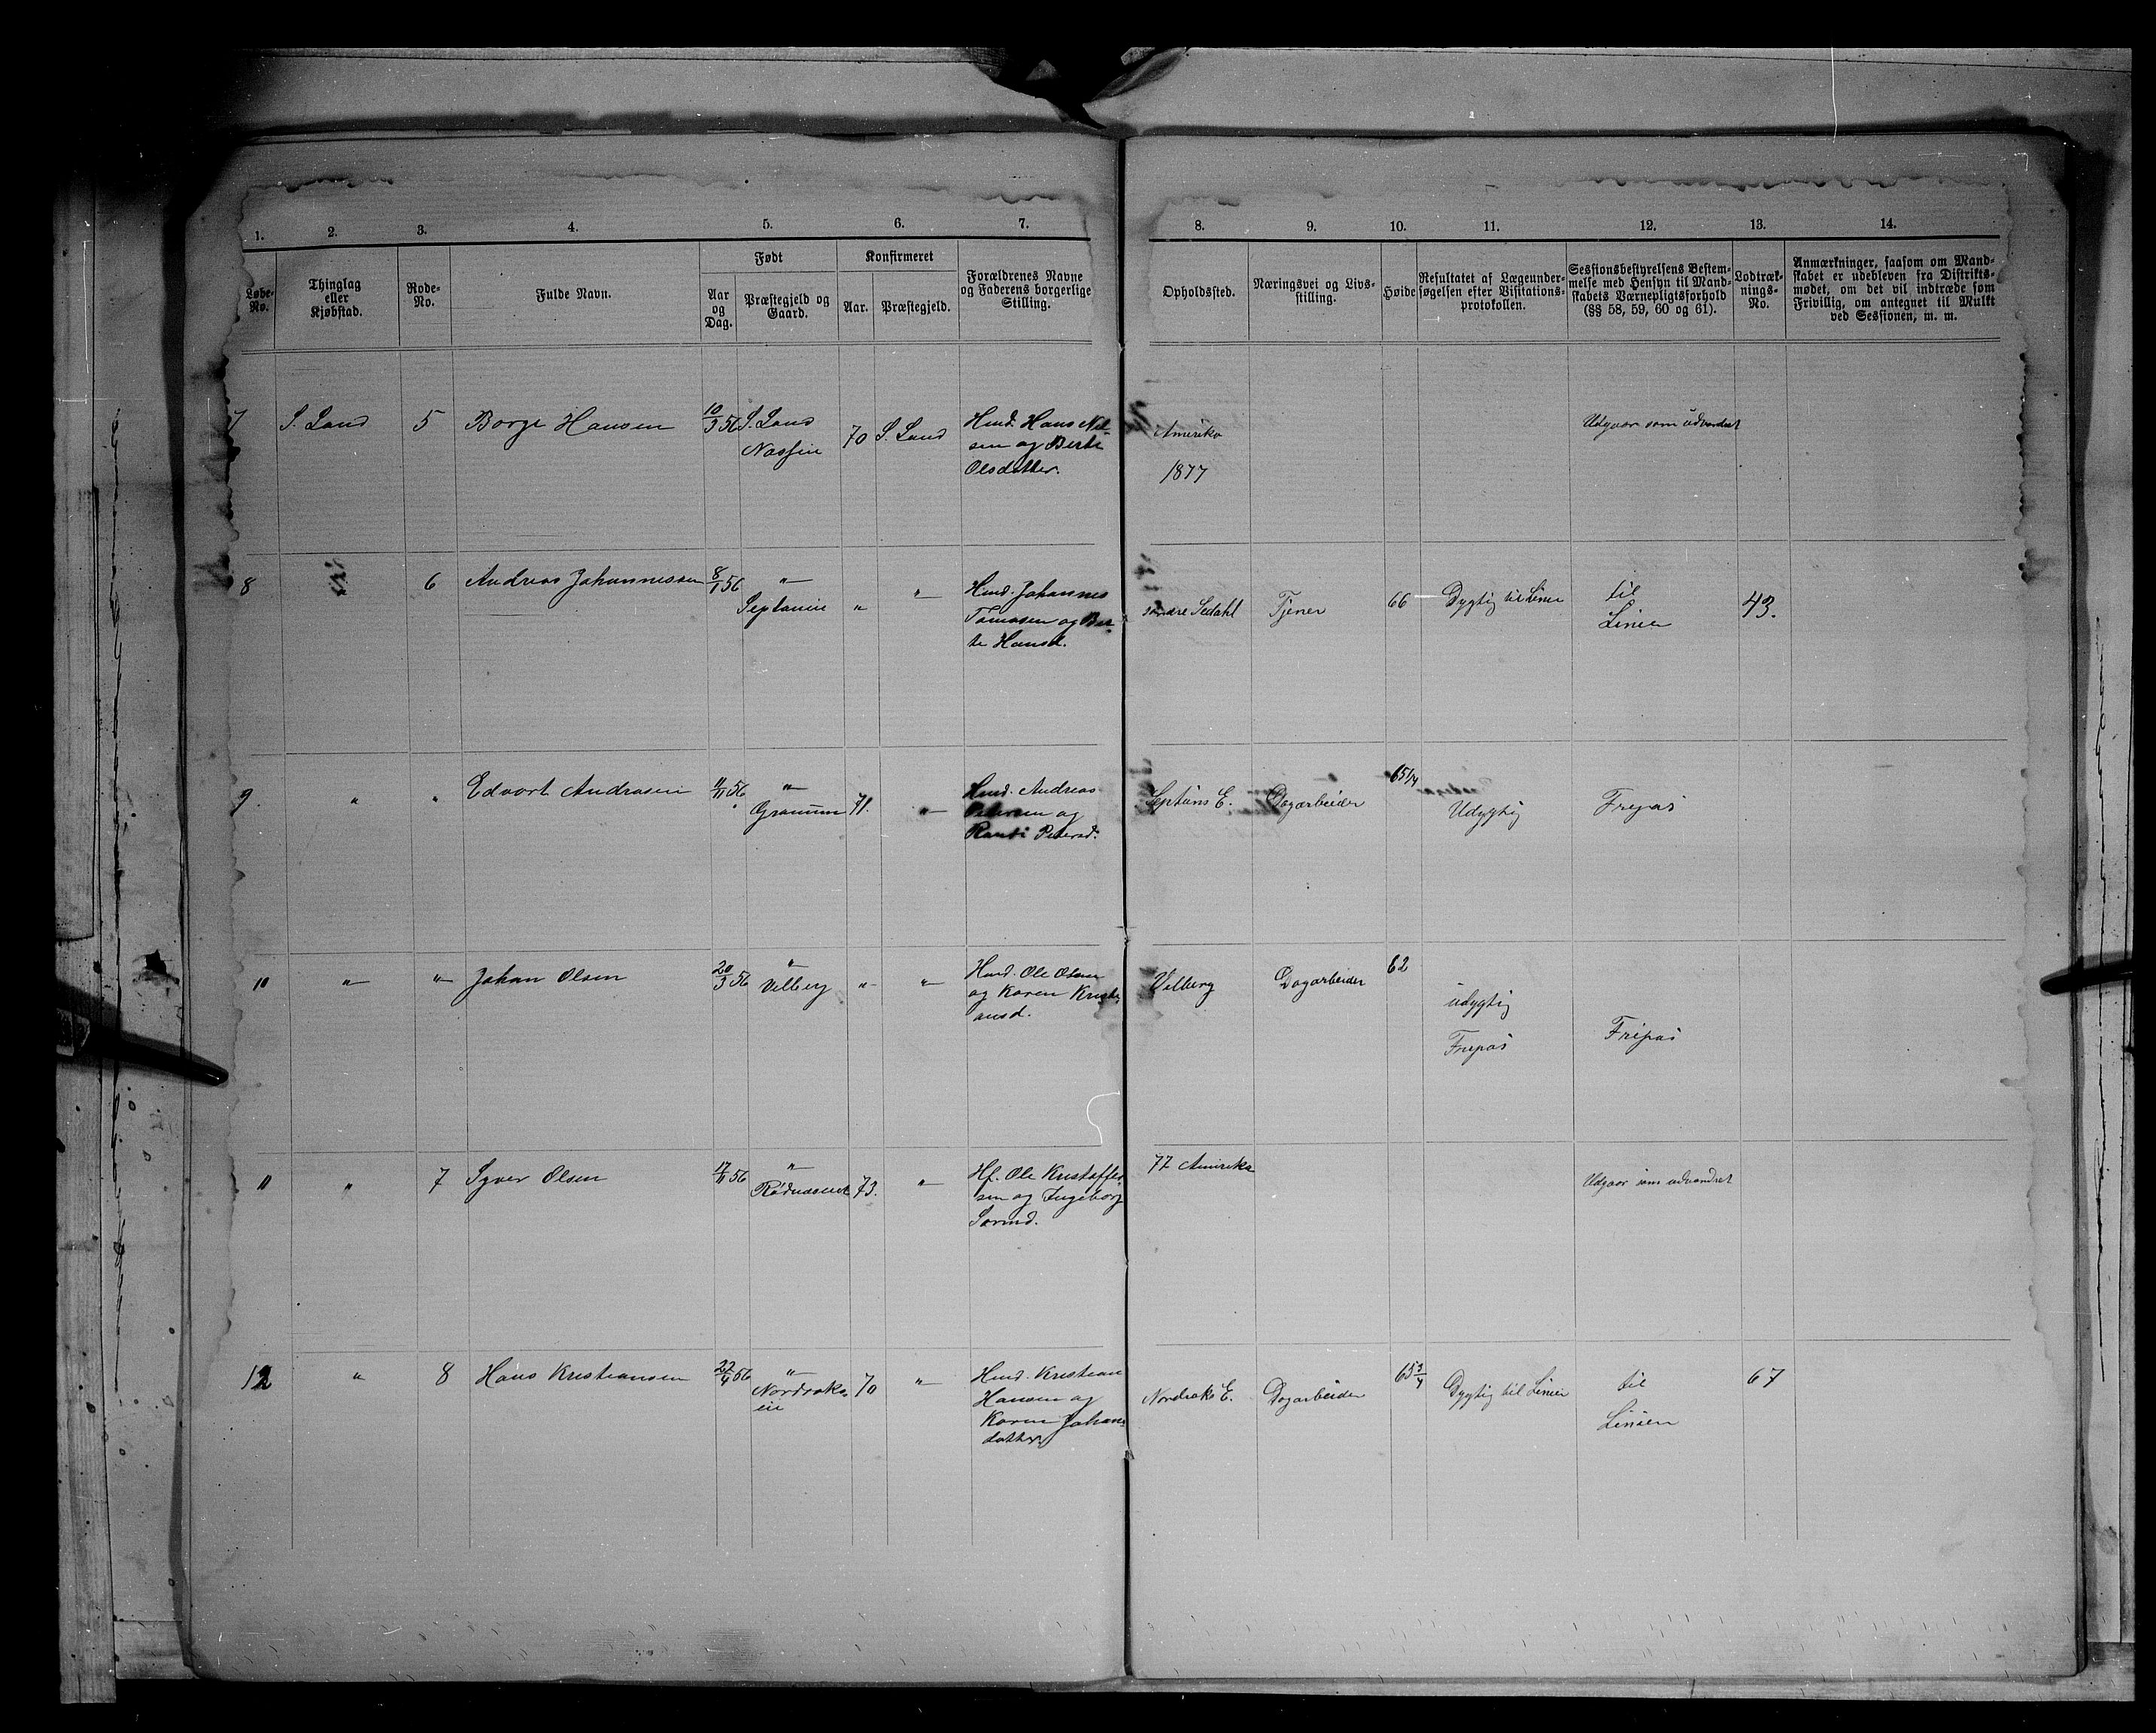 1. 2. 3. 4. 5. 6. 7. 8. 9. 10. 11. 12. 13. 14.
Løbe-
No.
Thinglag
eller
Kjøbstad.
Rode-
No.
Fulde Navn.
Født
Aar
og
Dag.
Præstegjeld og
Gaard.
Konfirmeret
Aar.
Præstegjeld.
Forældrenes Navne
og Faderens borgerlige
Stilling.
Opholdssted.
Næringsvei og Livs-
stilling.
Høide
Resultatet af Lægeunder-
søgelsen efter Visitations-
protokollen.
Sessionsbestyrelsens Bestem-
melse med Hensyn til Mand-
skabets Værnepligtsforhold
(§§ 58, 59, 60 og 61).
Lodtræk-
nings-
No.
Anmærkninger, saasom om Mand-
skabet er udebleven fra Distrikts-
mødet, om det vil indtræde som
Frivillig, om antegnet til Mulkt
ved Sessionen, m. m.
7 S. Land 5 Borge Hansen 10/3 56 S. Land
70 S. Land
Hmd. Hans Nil-
sen og Berte
Olsdatter.
Amerika
1877
Udgaar som udvandret
8 6 Andreas Johannessen 8/1 56 "
Septunin " "
Hmd. Johannes
Tomasen og Ber-
te Hansd.
søndre Sedahl Tjener 66 Dygtig til Linien
til
Linien
43.
9 " " Edvart Andrasen 11/11 56 "
Granum 71. "
Hmd. Andreas
Petersen og
Randi Petersd.
Septuns E. Dagarbeider 65 1/4
Udygtig
Fripas
10 " " Johan Olsen 20/3 56 "
Velberg " "
Hmd. Ole Olsen
og Karen Kristi-
ansd.
Velberg Dagarbeider 62
udygtig
Fripas
Fripas
11 " 7 Syver Olsen 17/11 56 "
73. "
Hf. Ole Kristoffer-
sen og Ingeborg
77 Amerika
Udgaar som udvandret
12 " 8 Hans Kristiansen 22/4 56 "
Nordraks-
eie
70 "
Hmd. Kristian
Hansen og
Karen Johans-
datter
Nordraks E. Dagarbeider 65 3/4 Dygtig til Linien
til
Linien
67